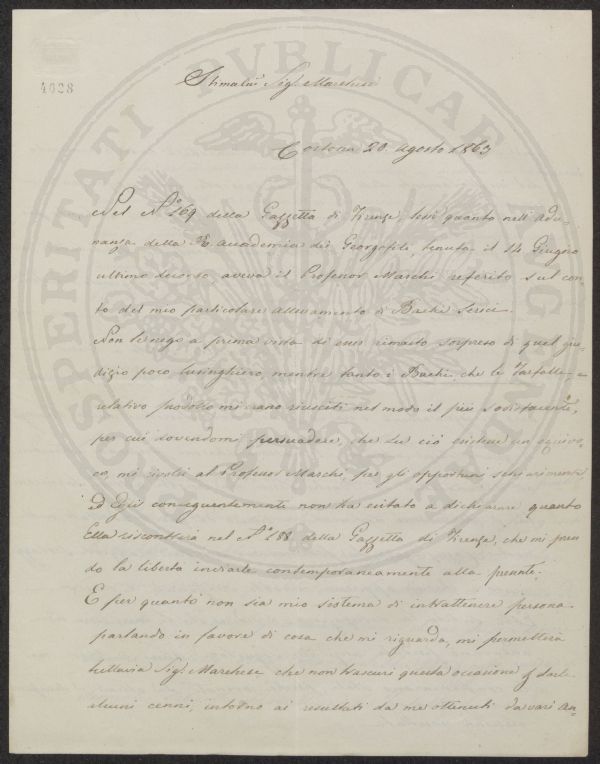 4028
Stimatis. Sig. Marchese
Cortona 20. Agosto 1863
Nel N.° 169 della Gazzetta di Firenze, lessi quanto nell'adu-
nanza della R. Accademia dei Georgofili, tenuta il 14 Giugno
ultimo decorso, aveva il Professor Marchi referito sul con-
to del mio particolare allevamento di Bachi Serici.
Non le nego a prima vista di esser rimasto sorpreso di quel giu-
dizio poco lusinghiero, mentre tanto i Bachi che le Farfalle
relativo prodotto mi erano riusciti nel modo il più sodisfacente,
per cui dovendomi persuadere, che su ciò esistesse un equivo-
co, mi rivolsi al Professor Marchi, per gli opportuni schiarimenti
ed Egli conseguentemente non ha esitato a dichiarare quanto
Ella riscontrerà nel N.° 188 della Gazzetta di Firenze, che mi pren-
do la libertà inviarle contemporaneamente alla presente.
E per quanto non sia mio sistema di intrattenere persona
parlando in favore di cosa che mi riguarda, mi permetterà
tuttavia Sig. Marchese che non trascuri questa occasione p darle
alcuni cenni, intorno ai resultati da me ottenuti da vari an-
PROSPERITATI PVBLICAE AVGENDAE